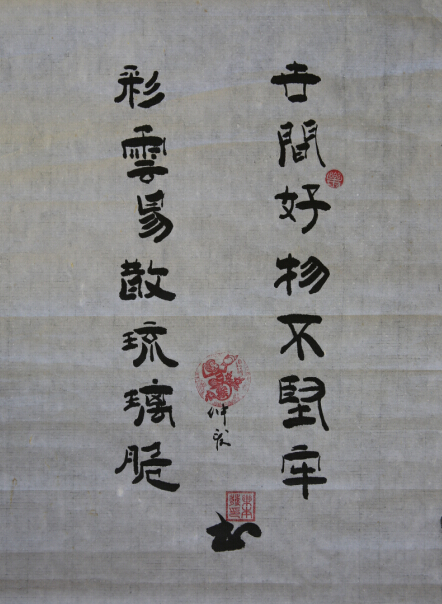 世間好物不堅牢
彩雲易散琉璃脆